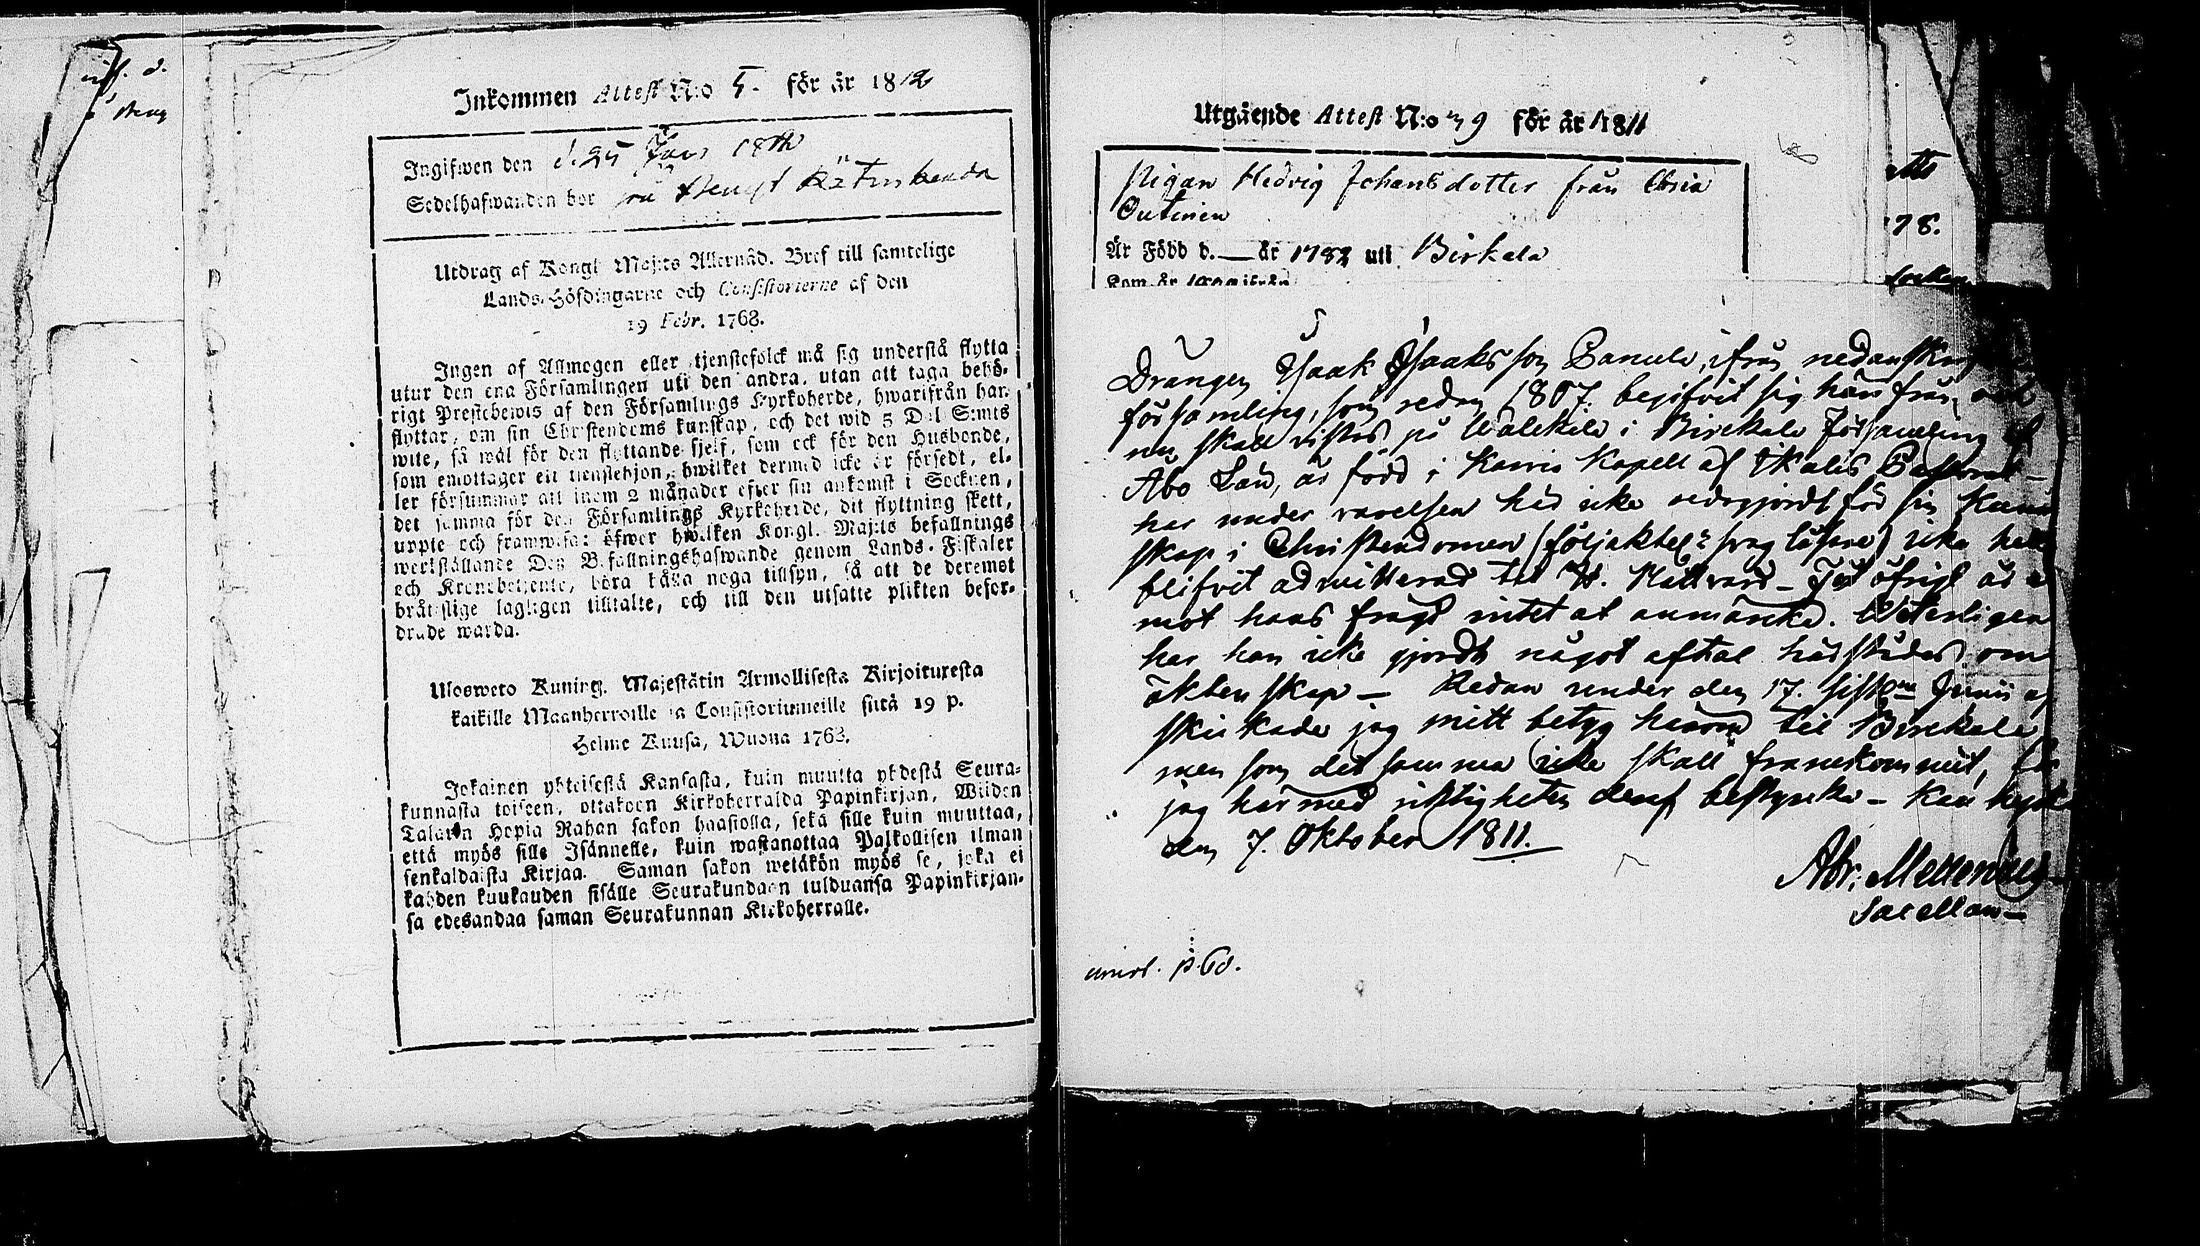 Inkommen Attest N:o 5. för år 1812
Ingifwen den d. 25 Jan. 18
Sedelhafwanden bor
Utdrag af Kongl. Maj:ts Allernåd. Bref till samtelige
Lands-Höfdingarne och Consistorierne af den
19 Febr. 1768.
Ingen af Allmogen eller tjenstefolck må sig understå flytta
utur den ena Församlingen uti den andra, utan att taga behö-
rigt Prestebewis af den Församlings Kyrkoherde, hwarifrån han
flyttar, om sin Christendoms kunskap, och det wid 5 Dal. S:mts
wite, så wäl för den flyttande sjelf, som ock för den Husbonde,
som emottager ett tienstehjon, hwilket dermed icke är försedt, el-
ler försummar att inom 2 månader efter sin ankomst i Socknen,
det samma för den Församlings Kyrkoherde, dit flyttning skett,
uppte och framwisa: öfwer hwilken Kongl. Maj:ts befallnings
werkställande Des Befallningshafwande genom Lands-Fiskaler
och Kronobetjente, böra hålla noga tillsyn, så att de deremot
bråtslige lagligen tilltalte, och till den utsatte plikten befor-
drade warda.
Ulosweto Kuning. Majestätin Armollisesta Kirjoituxesta
kaikille Maanherroille ja Consistoriumeille siitä 19 p.
Helme Kuusa, Wuonna 1768.
Jokainen yhteisestä Kansasta, kuin muutta yhdestä Seura-
kunnasta toiseen, ottakoon Kirkoherralda Papinkirjan, Wiiden
Talarin Hopia Rahan sakon haastolla, sekä sille kuin muuttaa,
että myös sille Isännelle, kuin wastanottaa Palkollisen ilman
senkaldaista Kirjaa. Saman sakon wetäkön myös se, joka ei
kahden kuukauden sisälle Seurakundaan tulduansa Papinkirjan-
sa edesandaa saman Seurakunnan Kirkoherralle.
Utgående Attest N:o 39 för år 1811
Pigan Hedvig Johansdotter från
Outinen
Är Född d. — år 1782 uti Birkala
5
Drängen Isaak Isaaksson ifrån
församling, som redan 1807 begifvit sig härifrån, och
nu skall vistas på i Birckala Församling af
Åbo Län, är född i Kapell af
har under varelsen här icke redogjordt för sin Kun
skap i Christendomen icke hel
blifvit admitterad til H. Nattvard – I öfrigt är
mot hans frägd intet at anmärka. Veterligen
har han icke gjordt något aftal härstädes om
äktenskap – Redan under den 17. sistl. Junii af
skickade jag mitt betyg härom til Birckala
men som det samma icke skall framkommit, får
jag härmed riktigheten deraf bestyrka –
den 7. Oktober 1811.
Abr.
Sacellan
p. 60.